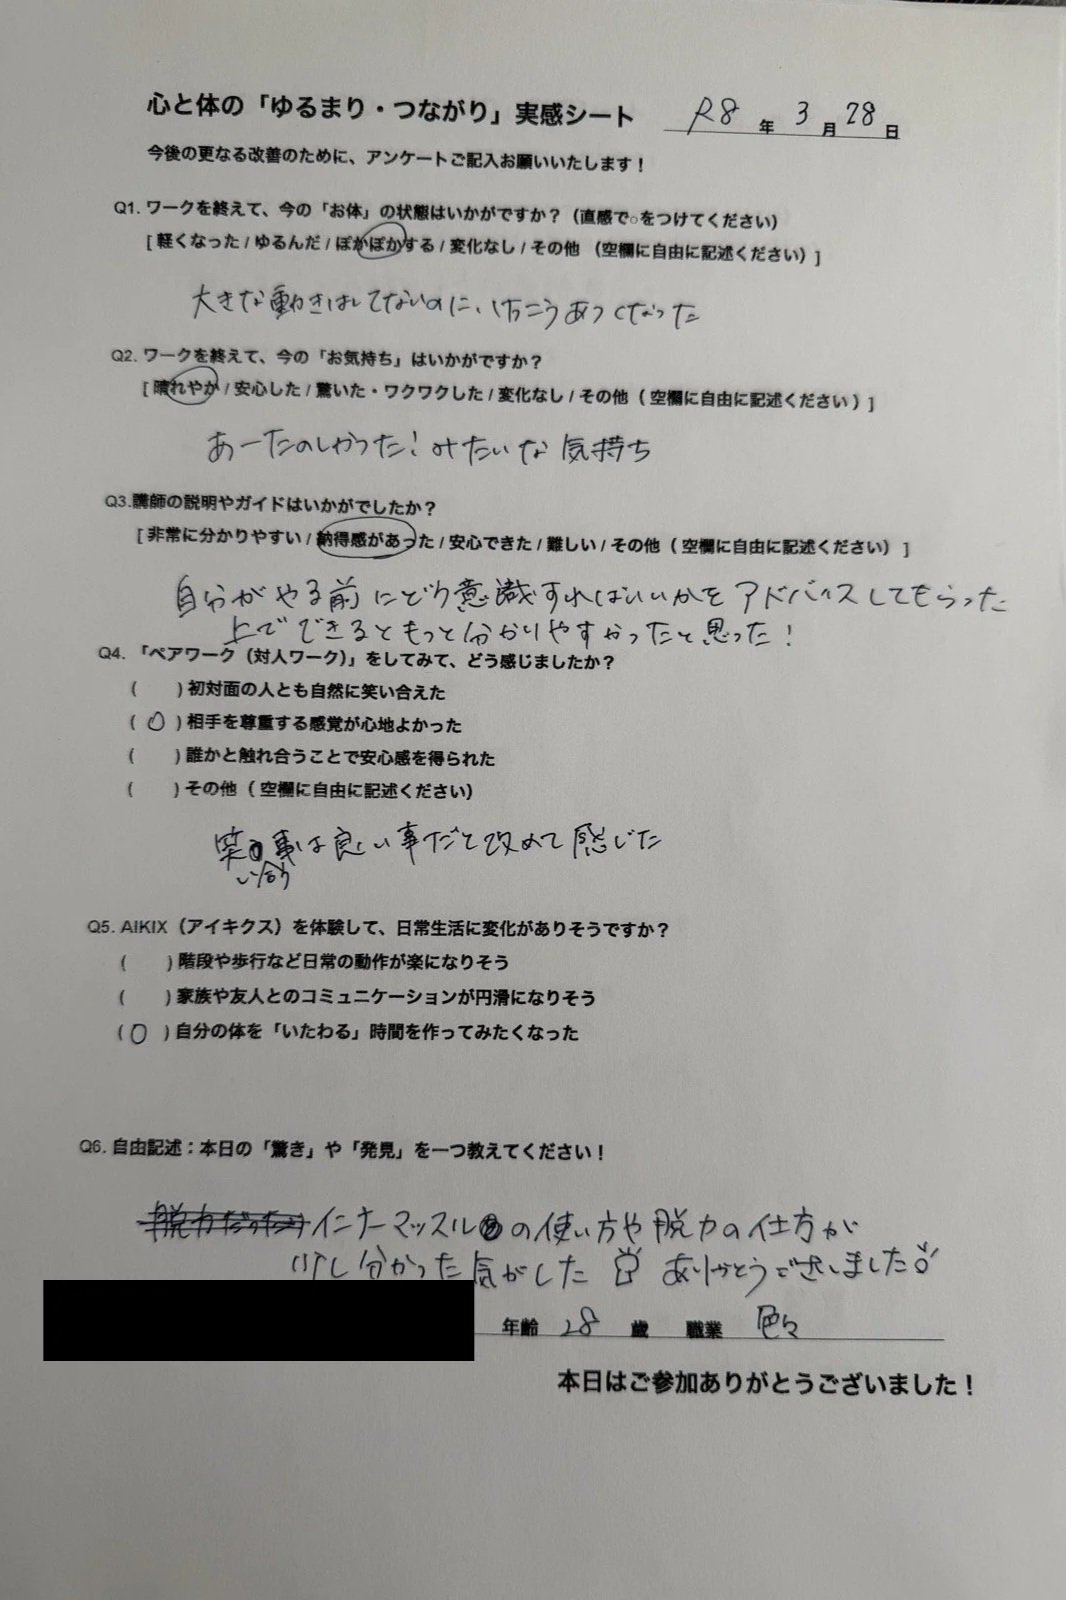 心と体の「ゆるまり・つながり」実感シート R8 年 3 月 28 日
今後の更なる改善のために、アンケートご記入お願いいたします！
Q1. ワークを終えて、今の「お体」の状態はいかがですか？（直感で○をつけてください）
[ 軽くなった / ゆるんだ / ぽかぽかする / 変化なし / その他 （空欄に自由に記述ください）]
大きな動きはしてないのに、けっこうあつくなった
Q2. ワークを終えて、今の「お気持ち」はいかがですか？
[ 晴れやか / 安心した / 驚いた・ワクワクした / 変化なし / その他（ 空欄に自由に記述ください ）]
あーたのしかった！みたいな気持ち
Q3.講師の説明やガイドはいかがでしたか？
[ 非常に分かりやすい / 納得感があった / 安心できた / 難しい / その他（ 空欄に自由に記述ください） ]
自分がやる前にどう意識すればいいかをアドバイスしてもらった
上でできるともっと分かりやすかったと思った！
Q4. 「ペアワーク（対人ワーク）」をしてみて、どう感じましたか？
( ) 初対面の人とも自然に笑い合えた
( ○ ) 相手を尊重する感覚が心地よかった
( ) 誰かと触れ合うことで安心感を得られた
( ) その他（ 空欄に自由に記述ください）
笑い合う事は良い事だと改めて感じた
Q5. AIKIX（アイキクス）を体験して、日常生活に変化がありそうですか？
( ) 階段や歩行など日常の動作が楽になりそう
( ) 家族や友人とのコミュニケーションが円滑になりそう
( ○ ) 自分の体を「いたわる」時間を作ってみたくなった
Q6. 自由記述：本日の「驚き」や「発見」を一つ教えてください！
インナーマッスルの使い方や脱力の仕方が
少し分かった気がした ありがとうございました
年齢 28 歳 職業 色々
本日はご参加ありがとうございました！